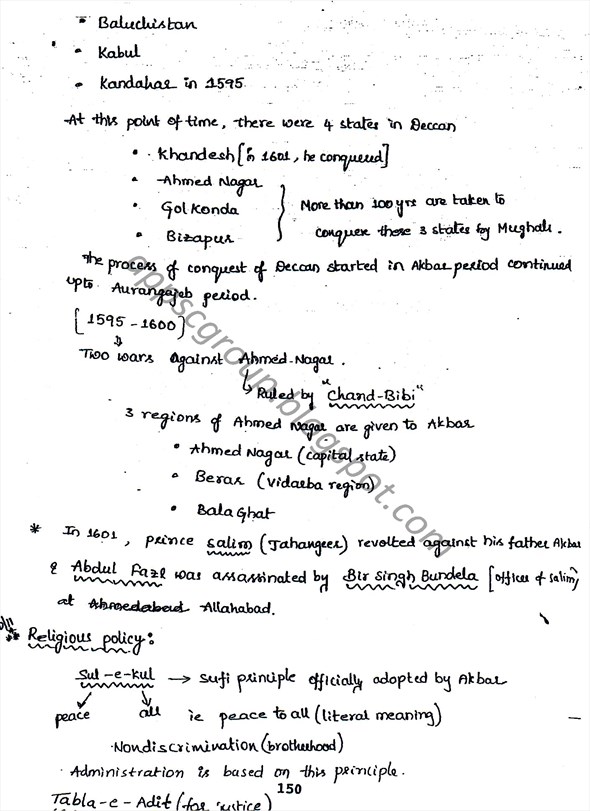 • Baluchistan
• Kabul
• Kandahar in 1595
At this point of time, there were 4 states in Deccan
• Khandesh [In 1601, he conquered]
• Ahmed Nagar
• Golkonda
• Bizapur
} More than 100 yrs are taken to
conquer these 3 states by Mughals.
The process of conquest of Deccan started in Akbar period continued
upto Aurangajeb period.
[1595 - 1600]
Two wars against Ahmed-Nagar.
↳ Ruled by "Chand-Bibi"
3 regions of Ahmed Nagar are given to Akbar
• Ahmed Nagar (capital state)
• Berar (vidarba region)
• Bala Ghat
* In 1601, prince salim (Jahangeer) revolted against his father Akbar
& Abdul Fazl was assassinated by Bir Singh Bundela [officer of salim]
at Ahmedabad Allahabad.
* Religious policy:
Sul-e-kul → sufi principle officially adopted by Akbar
peace all ie peace to all (literal meaning)
Nondiscrimination (brotherhood)
• Administration is based on this principle.
150
Tabla-e-Adit (for justice)
appscgroup.blogspot.com